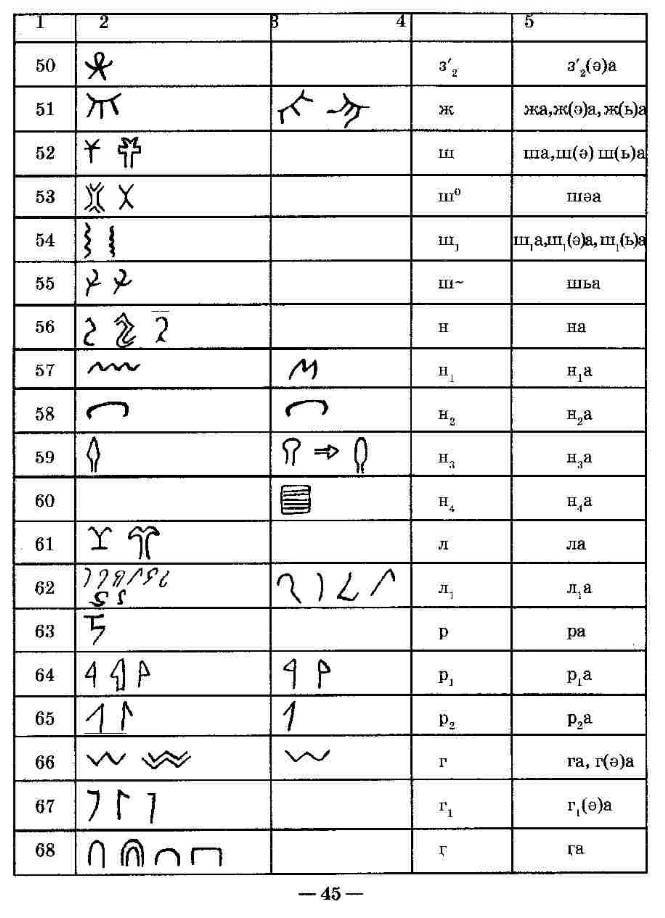 1 2 3 4 5
50 з′₂ з′₂(ә)а
51 ж жа,ж(ә)а, ж(ь)а
52 ш ша,ш(ә) ш(ь)а
53 ш⁰ шәа
54 ш₁ ш₁а,ш₁(ә)а, ш₁(ь)а
55 ш~ шьа
56 н на
57 н₁ н₁а
58 н₂ н₂а
59 ⇒ н₃ н₃а
60 н₄ н₄а
61 л ла
62 л₁ л₁а
63 р ра
64 р₁ р₁а
65 р₂ р₂а
66 г га, г(ә)а
67 г₁ г₁(ә)а
68 ӷ ӷа
— 45 —